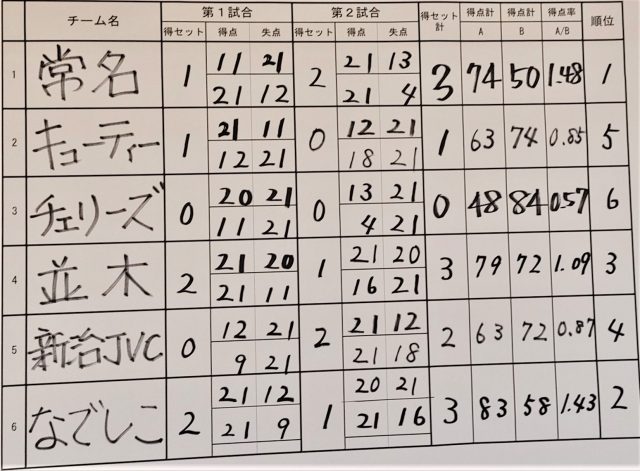 チーム名 第1試合 第2試合 得セット計 得点計A 得点計B 得点率A/B 順位
得セット 得点 失点 得セット 得点 失点
1 常名 1 11 21 2 21 13 3 74 50 1.48 1
21 12 21 4
2 キューティー 1 21 11 0 12 21 1 63 74 0.85 5
12 21 18 21
3 チェリーズ 0 20 21 0 13 21 0 48 84 0.57 6
11 21 4 21
4 並木 2 21 20 1 21 20 3 79 72 1.09 3
21 11 16 21
5 新治JVC 0 12 21 2 21 12 2 63 72 0.87 4
9 21 21 18
6 なでしこ 2 21 12 1 20 21 3 83 58 1.43 2
21 9 21 16